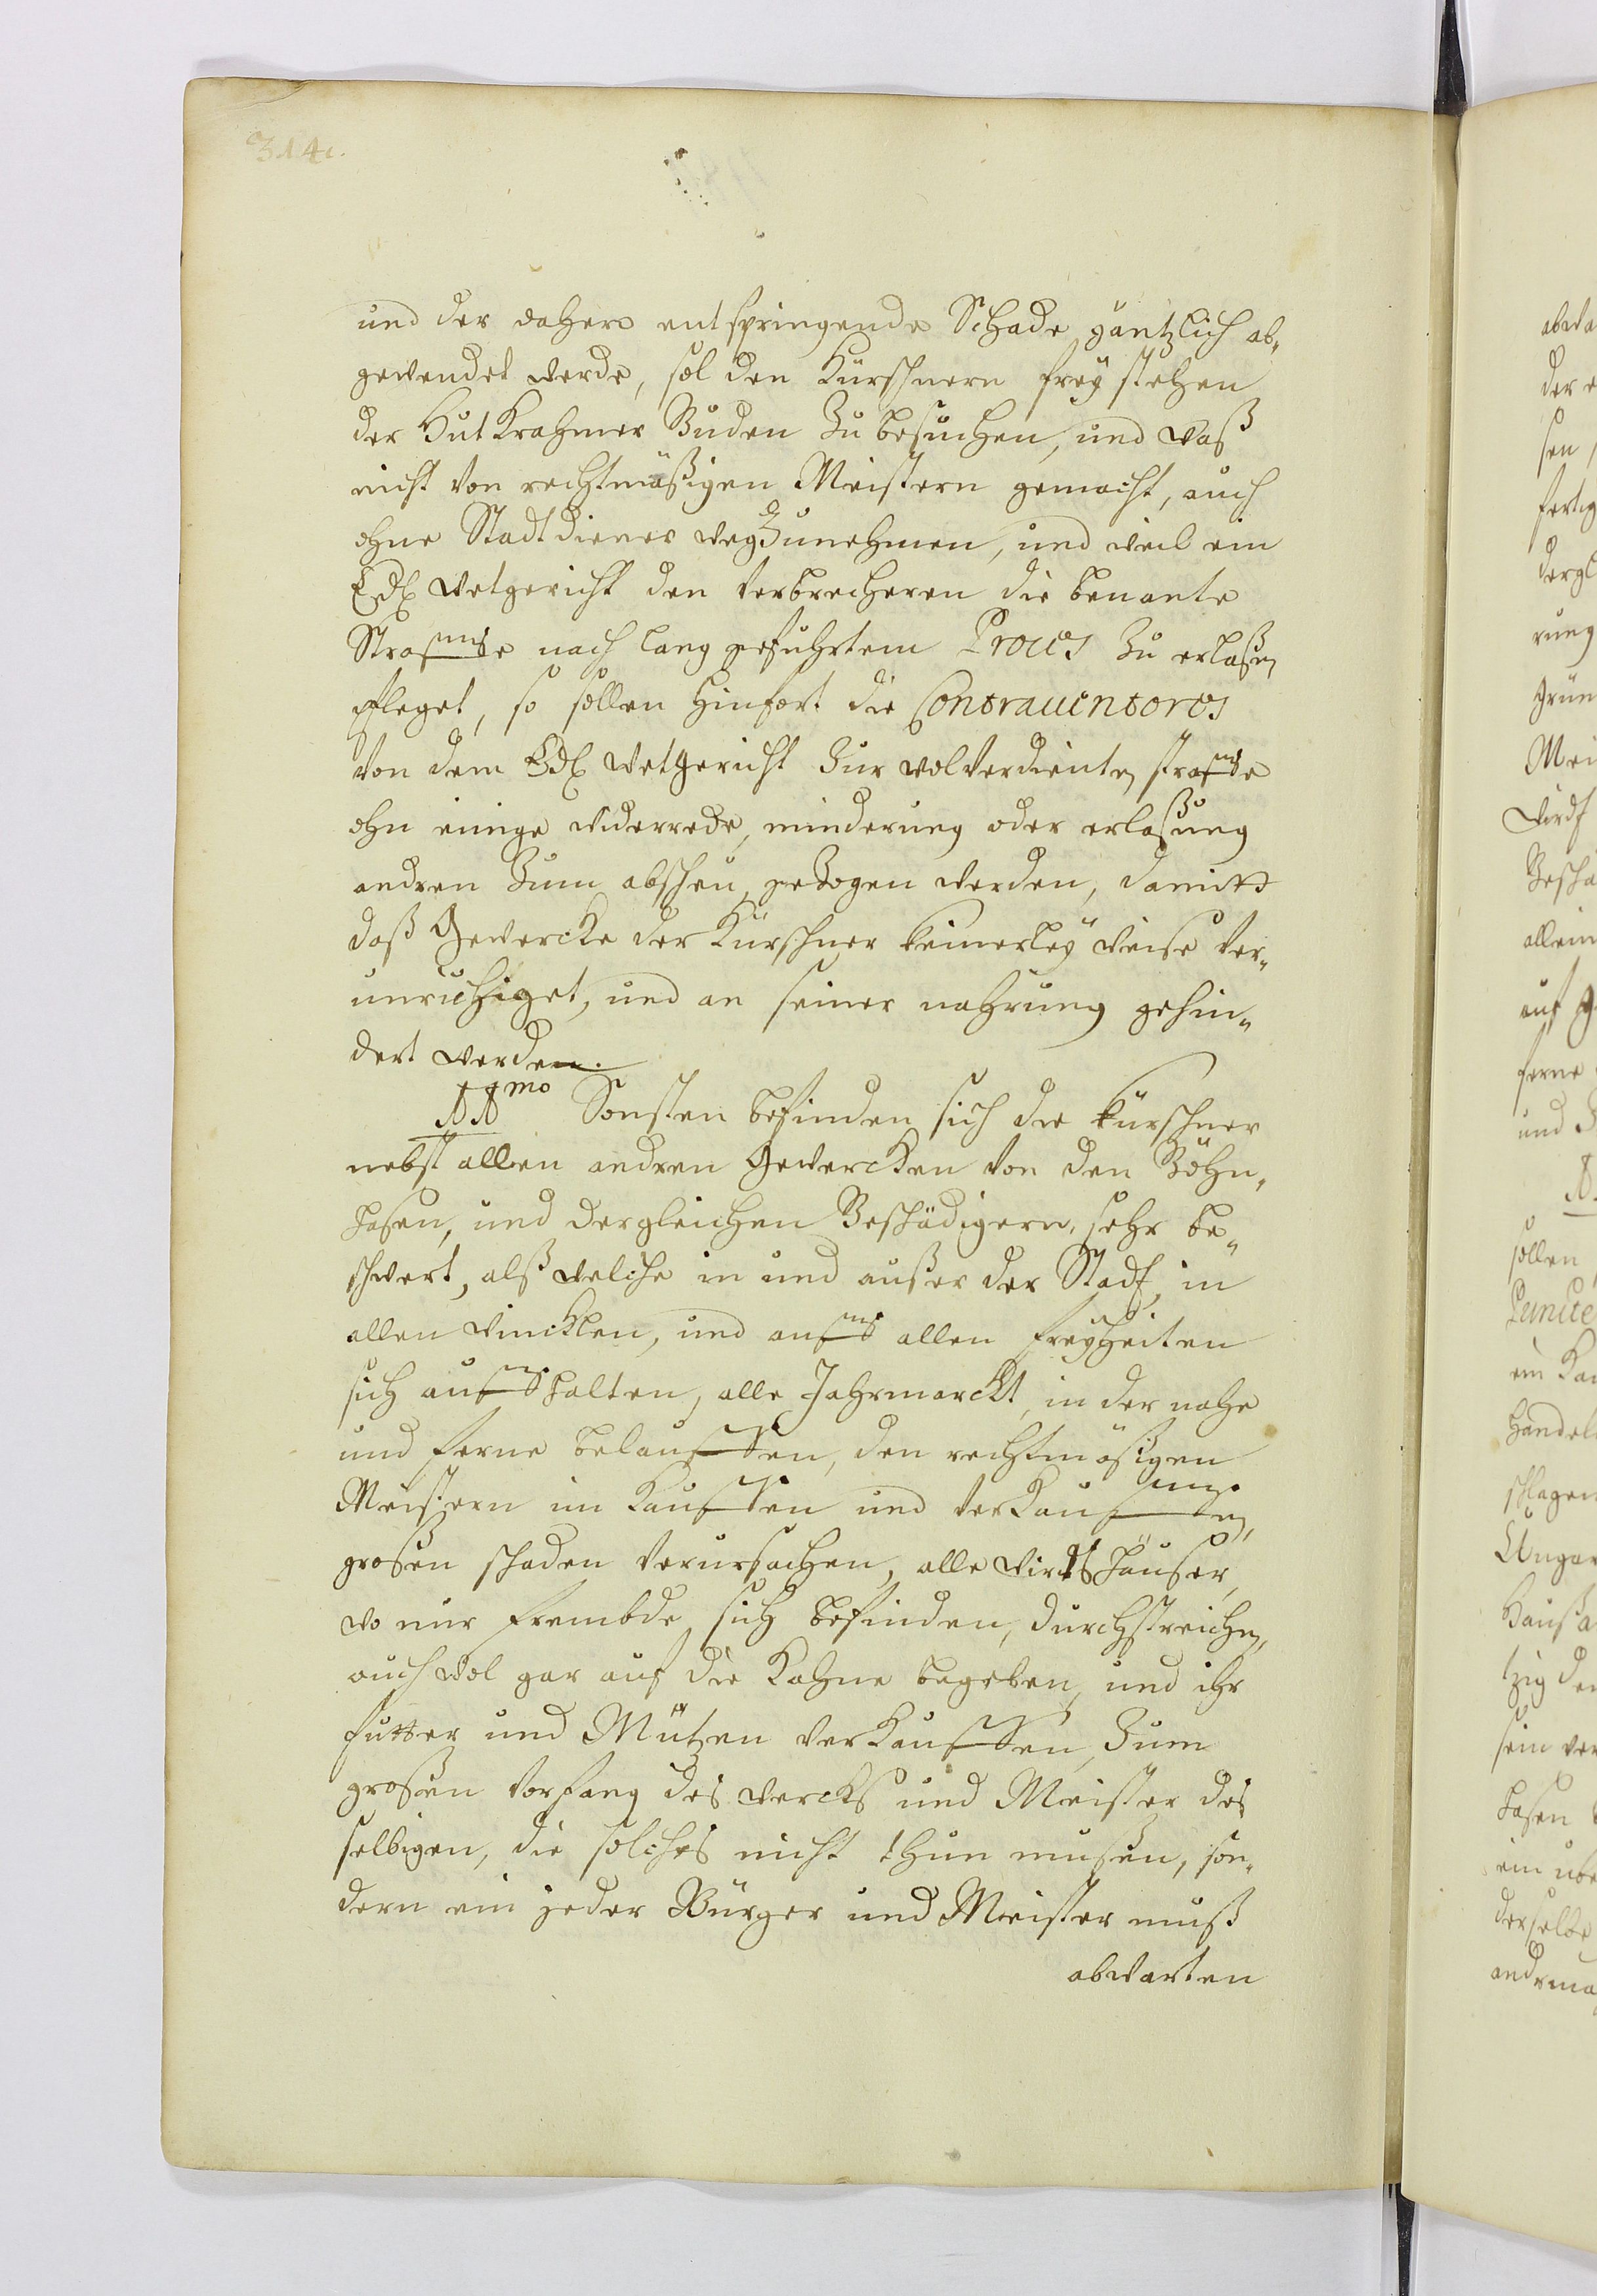 314.
und der dahero entspringende Schade gäntzlich ab¬
gewendet werde, sol den Kürschnern freÿ stehen
der Hut Krahmer Buden Zu besuchen, und waß
nicht von rechtmäßigen Meistern gemacht, auch
ohne Stadtdiener wegZunehmen, und weil ein
Edl Wetgericht den Verbrecheren die benante
Straffe nach lang gefuhrtem Proces Zu erlaßen
pfleget, so sollen hinfort die Contrauentores
von dem Edl Wetgericht Zur wolverdienten straffe
ohn einige widerrede, minderung oder erlaßung
andren Zum abscheu, geZogen werden, damitt
daß Gewercke der Kürschner keinerleÿ weise ver¬
unruhiget, und an seiner nahrung gehin¬
dert werden.
11mo Sonsten befinden sich die Kürschner
nebst allen andren Gewercken von den Böhn¬
hasen, und dergleichen Beschädigern, sehr be¬
schwert, alß welche in und außer der Stadt, in
allen Wincklen, und auff allen freyheiten
sich auffhalten, alle Jahrmarckt, in der nahe
und ferne belauffen, den rechtmäßigen
Meistern im Kauffen und verKauffen,
großen schaden verursachen, alle Wirtshäuser,
wo nur frembde sich befinden, durchstreichen,
auch wol gar auf die Kahne begeben, und ihr
futter und Mützen verKauffen, Zum
großen Vorfang des wercks und Meister des
selbigen, die solches nicht thun mußen, son¬
dern ein jeder Bürger und Meister muß
abwarten